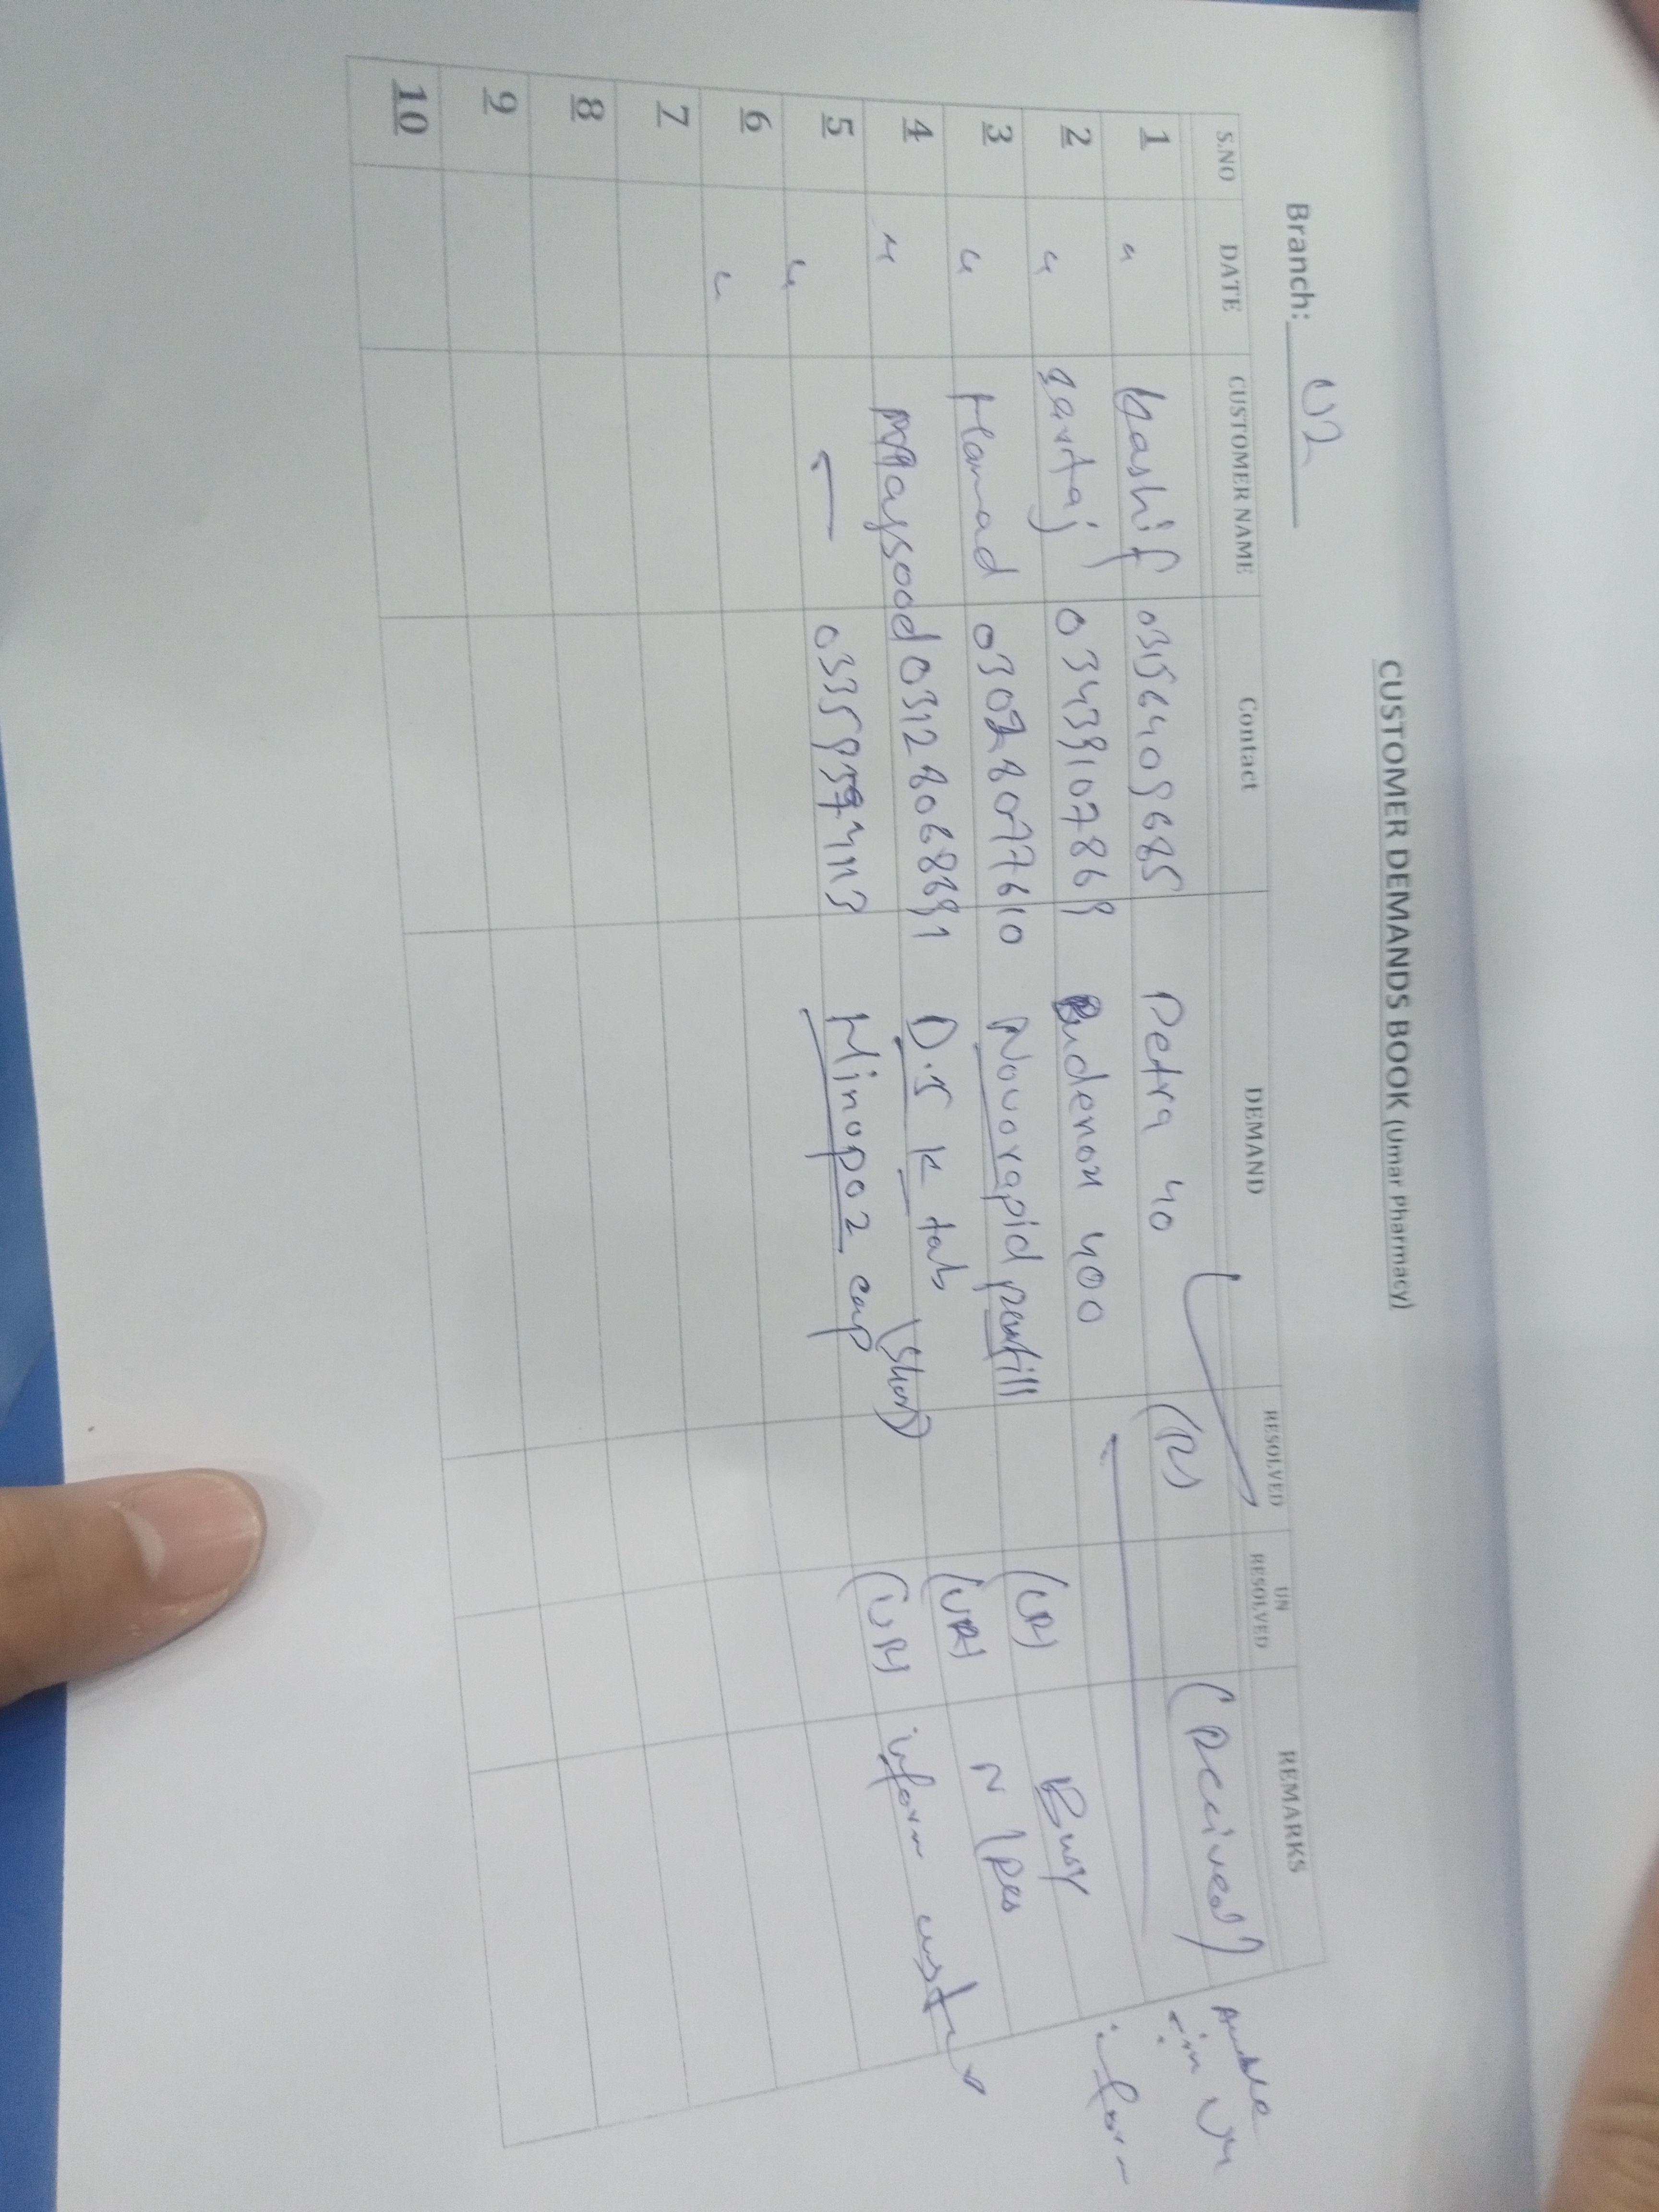 CUSTOMER DEMANDS BOOK (Umar Pharmacy)
Branch: U2
S.NO DATE CUSTOMER NAME Contact DEMAND RESOLVED UN RESOLVED REMARKS
1 " Kashif 03156409685 Petra 40 (R) (Received)
2 " Sartaj 03439107869 Budenox 400 inform
3 " Hamad 03028077610 Novorapid penfill (UR) Busy
4 " Maqsood 03128068691 D.S K tab (Short) (UR) N/Res
5 " Minopoz cap (UR) inform
6 "
7
8
9
10